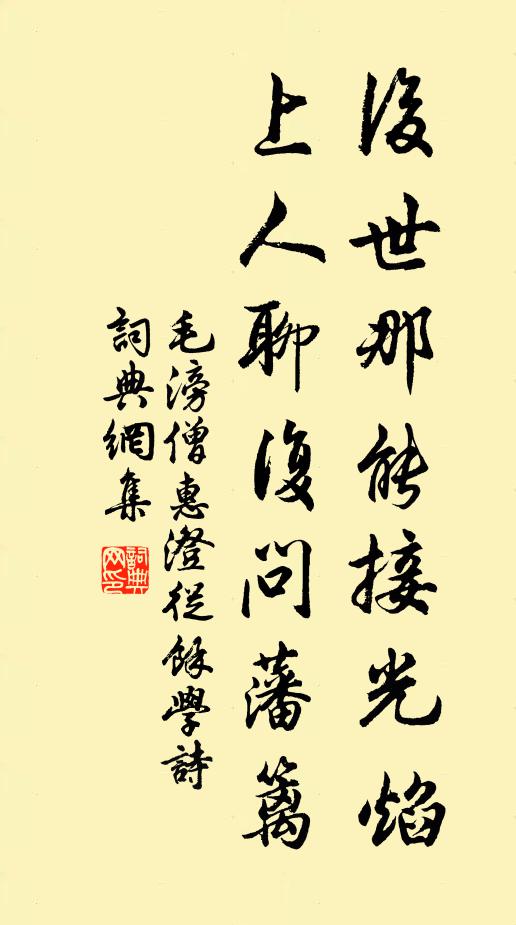 後世那能接光焰
上人聊復問藩籬
毛滂僧惠澄從餘學詩
詞典網集
詞典網印